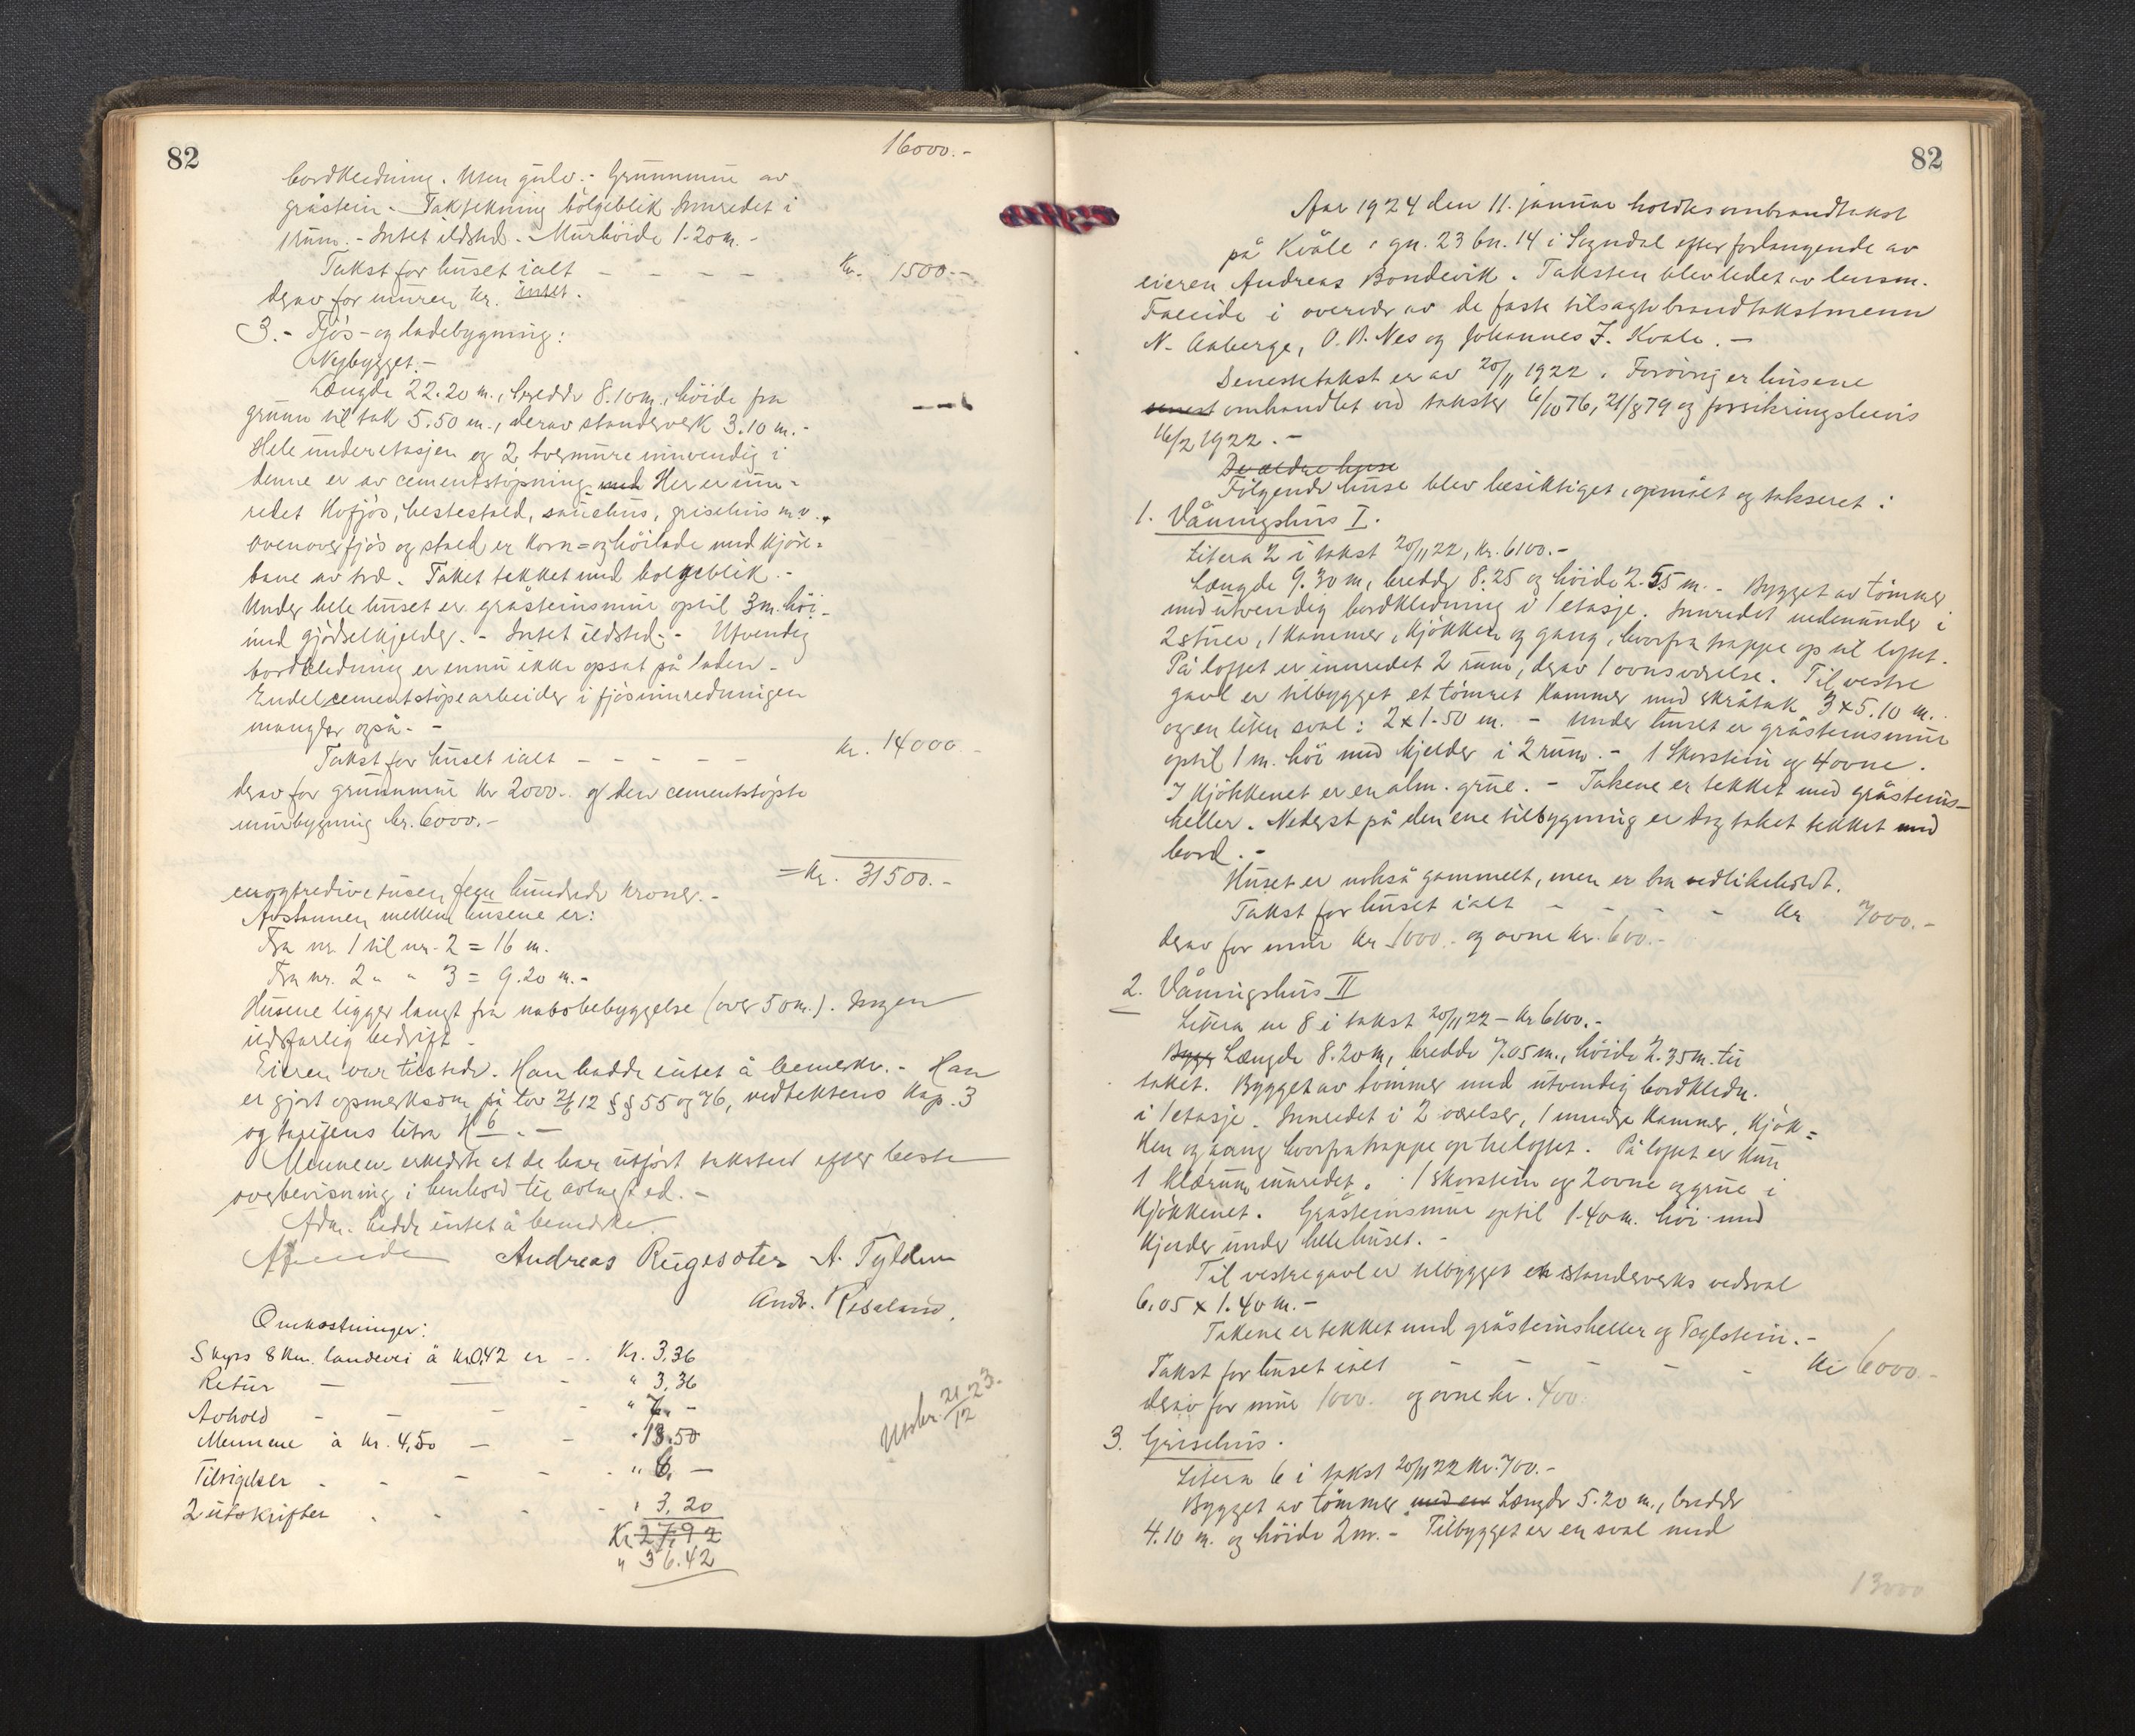 82
16000.-
bordkledning. Uten gulv.- Grunnmur av
gråstein.- Taktekning bølgeblik. Innredet i
1 rum.- Intet ildsted.- Murhøide 1.20 m.-
Takst for huset ialt - - - - Kr. 1500.-
derav for muren kr. intet.
3.- Fjøs- og ladebygning:
Nybygget.-
Længde 22.20 m., bredde 8.10 m., høide fra
grunn til tak 5.50 m., derav standerverk 3.10 m.-
Hele underetasjen og 2 tvermure innvendig i
denne er av cementstøpning med Her er inn-
redet kufjøs, hestestald, sauehus, grisehus m.v.
Ovenover fjøs og stald er korn= og høilade med kjøre-
bane av tre. Taket tekket med bølgeblik.-
Under hele huset er gråsteinsmur optil 3 m. høi-
med gjødselkjelder.- Intet ildsted.- Utvendig
bordkledning er ennu ikke opsat på laden.-
Endel cementstøpearbeider i fjøsinnredningen
mangler også.-
Takst for huset ialt - - - - - Kr. 14000.-
derav for grunnmur Kr 2000.- og den cementstøpte
murbygning kr. 6000.-
= Kr. 31500.-
enogtredivetusen fem hundrede kroner.-
Avstannen mellem husene er:
Fra nr. 1 til nr. 2 = 16 m.
Fra nr. 2 " " 3 = 9.20 m.-
Husene ligger langt fra nabobebyggelse (over 50 m.). Ingen
ildsfarlig bedrift.-
Eieren var tilstede. Han hadde intet å bemerke.- Han
er gjort opmerksom på lov 2/6 12 §§ 55 og 76, vedtektens Kap. 3
og tariffens litra H 6.-
Mennene erklærte at de har utført taksten efter beste
overbevisning i henhold til avlagt ed.-
Adm. hadde intet å bemerke.
Andreas Rugesæter A. Tylden
Andr.
Omkostninger:
Skyss 8 km. landevei á kr 0,42 er - . Kr. 3,36
Retur - - - " 3,36
Avhold - - - " 7. -
Mennene á kr. 4,50 - - " 13.50
Tilsigelser . - - - . " 6. -
2 utskrifter . . . - " 3,20
Kr 27,92
" 36.42
Utskr. 21/12 23.
82
Aar 1924 den 11. januar holdtes ombrandtakst
på Kvåle, gn. 23 bn. 14 i Sogndal efter forlangende av
eieren Andreas Bondevik. Taksten blev ledet av lensm.
Faleide i overvær av de faste tilsagte brandtakstmenn
N. Aaberge, O. B. Nes og Johannes J. Kvale.-
Seneste takst er av 20/11 1922. Forøvrig er husene
senest omhandlet ved takster 6/10 76, 21/8 79 og forsikringsbevis
16/2 1922.-
De ældre huse
Følgende huse blev besiktiget, opmålt og takseret:
1. Våningshus I.
Litera 2 i takst 20/11 22, kr. 6100.-
Længde 9.30 m, bredde 8.25 og høide 2.55 m.- Bygget av tømmer
med utvendig bordkledning i 1 etasje. Innredet nedenunder i
2 stuer, 1 kammer, kjøkken og gang, hvorfra trappe op til loftet.
På loftet er innredet 2 rum, derav 1 ovnsværelse. Til vestre
gavl er tilbygget et tømret kammer med skråtak 3 x 5.10 m.
og en liten sval: 2 x 1.50 m.- Under huset er gråsteinsmur
optil 1 m. høi med kjelder i 2 rum.- 1 skorstein og 4 ovne.
I kjøkkenet er en alm. grue.- Takene er tekket med gråsteins-
heller. Nederst på den ene tilbygning er dog taket tekket med
bord.-
Huset er nokså gammelt, men er bra vedlikeholdt.
Takst for huset ialt - - - - Kr 7000.-
derav for mur kr 1000.- og ovne kr. 600.-
2. Våningshus II
Litera nr 8 i takst 20/11 22 - Kr 6100.-
Bygg Længde 8.20 m, bredde 7.05 m., høide 2.35 m. til
taket. Bygget av tømmer med utvendig bordkledn.
i 1 etasje. Innredet i 2 værelser, 1 mindre kammer, kjøk=
ken og gang hvorfra trappe op til loftet. På loftet er kun
1 klærum innredet. 1 skorstein og 2 ovne og grue i
kjøkkenet. Gråsteinsmur optil 1.40 m. høi med
kjelder under hele huset.-
Til vestre gavl er tilbygget en standerverks vedsval
6,05 x 1.40 m.-
Takene er tekket med gråsteinsheller og Teglstein.-
Takst for huset ialt - - - - - Kr 6000.-
derav for mur 1000. og ovne kr. 400.
3. Grisehus.
Litera 6 i takst 20/11 22 kr. 700.-
Bygget av tømmer med en Længde 5.20 m., bredde
4.10 m. og høide 2 m.- Tilbygget er en sval med
13000